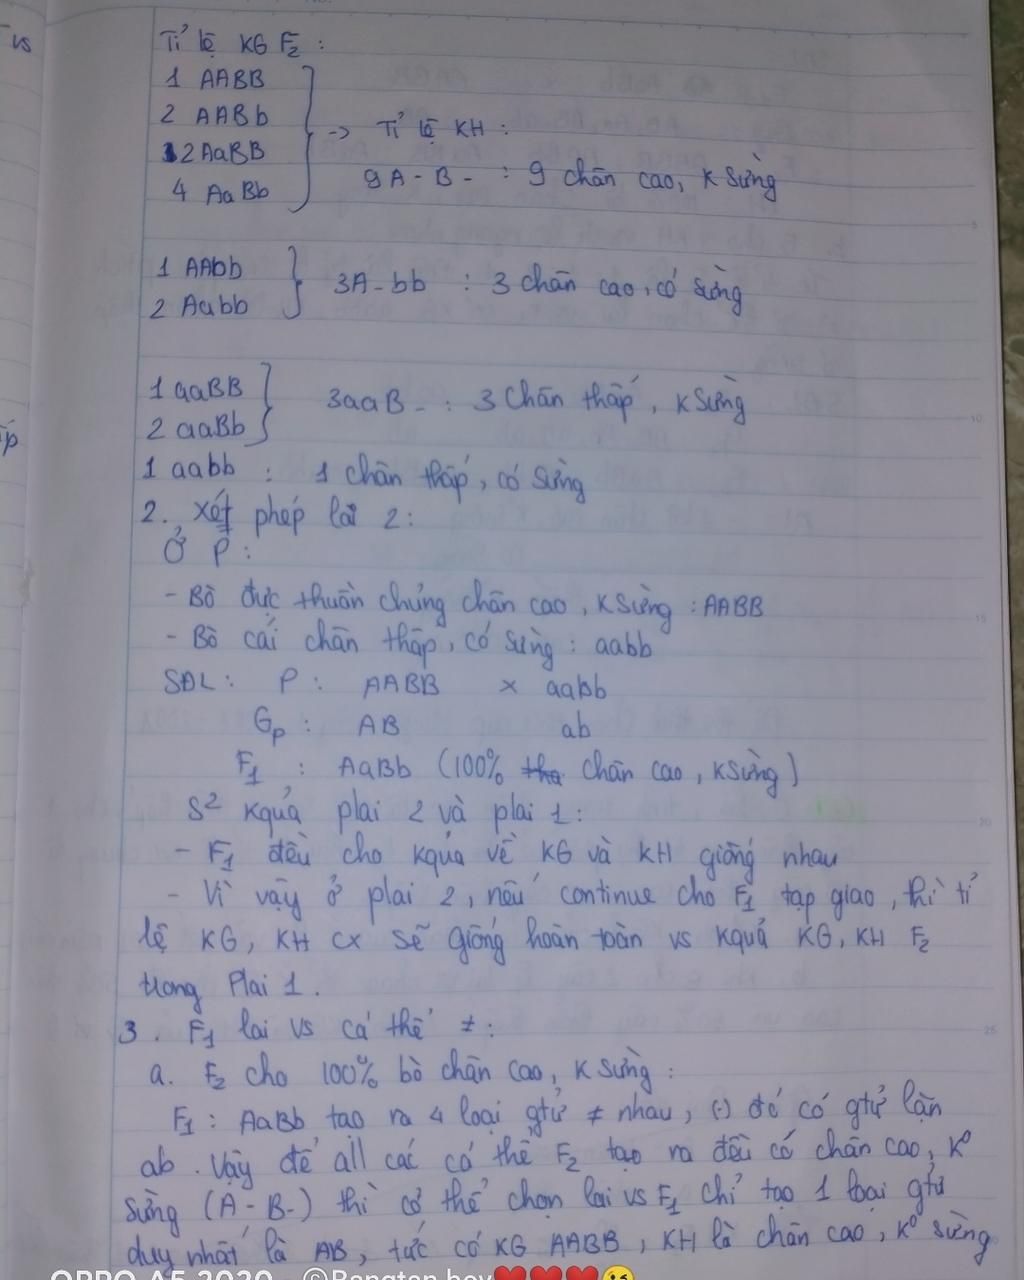 vs
Tỉ lệ KG F₂ :
1 AABB
2 AABb
2 AaBB
4 AaBb
-> Tỉ lệ KH :
9 A - B - : 9 chân cao, K Sừng
1 AAbb
2 Aabb
3A - bb : 3 chân cao, có sừng
1 aaBB
2 aaBb
3aaB - : 3 Chân thấp, K Sừng
1 aabb : 1 chân thấp, có sừng
2. Xét phép lai 2 :
Ở P :
- Bò đực thuần chủng chân cao, K Sừng : AABB
- Bò cái chân thấp, có sừng : aabb
SĐL : P : AABB x aabb
Gp : AB ab
F₁ : AaBb (100% chân cao, K Sừng)
S² kquả plai 2 và plai 1 :
- F₁ đều cho kquả về KG và KH giống nhau
- Vì vậy ở plai 2, nếu continue cho F₁ tạp giao, thì tỉ
lệ KG, KH cx sẽ giống hoàn toàn vs kquả KG, KH F₂
trong Plai 1.
3. F₁ lai vs cá thể ≠ :
a. F₂ cho 100% bò chân cao, K Sừng :
F₁ : AaBb tạo ra 4 loại gtử ≠ nhau, (-) đó có gtử lặn
ab. Vậy để all các cá thể F₂ tạo ra đều có chân cao, K⁰
sừng (A - B-) thì cơ thể chọn lai vs F₁ chỉ tạo 1 loại gtử
duy nhất là AB, tức có KG AABB, KH là chân cao, K⁰ sừng
OPPO A5 2020 ©Bangtan boy❤️❤️❤️😘